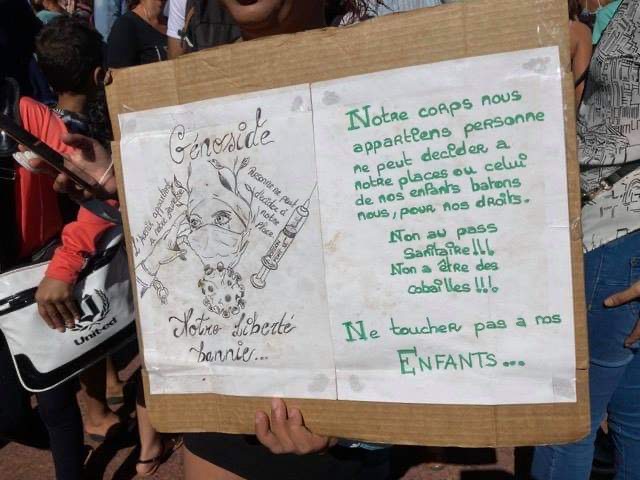 Génoside
Personne ne peut
décider à
notre
place
Notre liberté
bannie...
Notre corps nous
appartiens personne
ne peut decider a
notre places ou celui
de nos enfants batons
nous, pour nos droits.
Non au pass
Sanitaire!!!
Non a être des
cobailles!!!
Ne toucher pas a nos
ENFANTS...
United